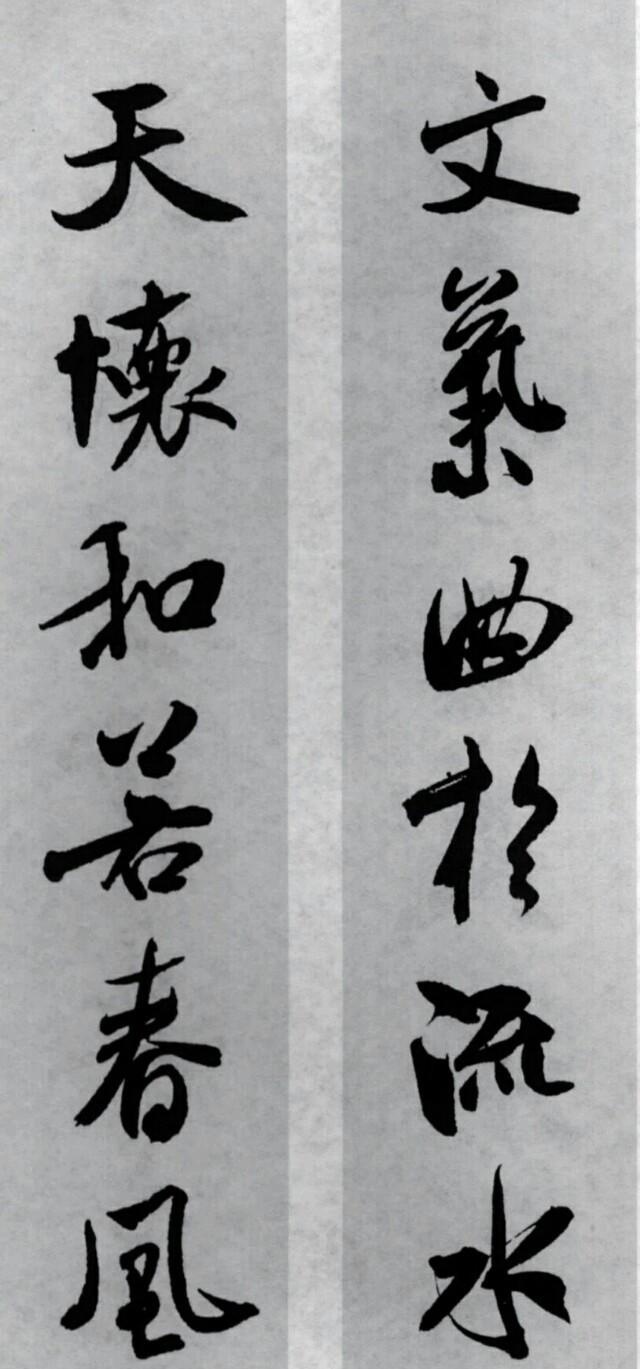 文藝曲於流水
天懷和若春風